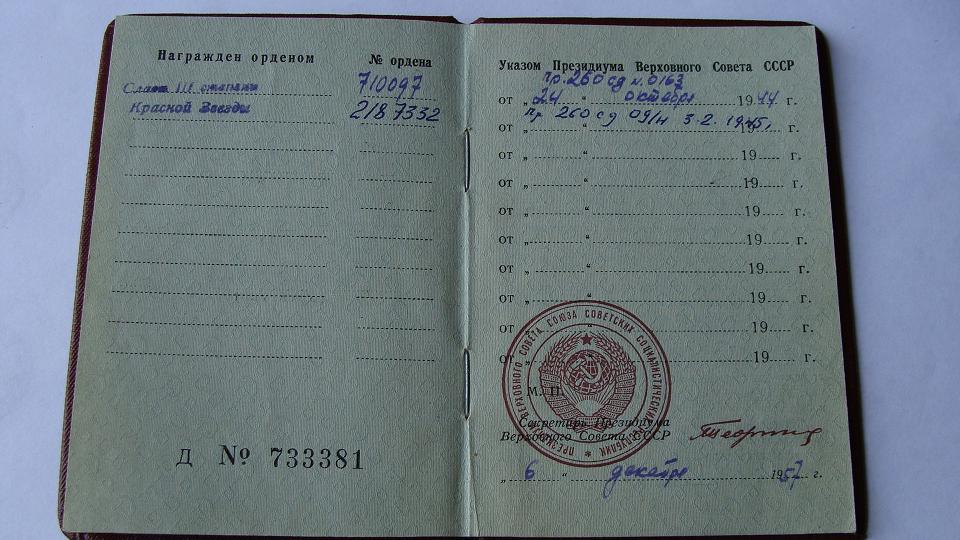 Награжден орденом № ордена
Слава III степени 710097
Красной Звезды 2187332
Д № 733381
Указом Президиума Верховного Совета СССР
пр. 260 сд №.0163
от „ 24 “ октября 1944 г.
пр 260 сд 09/н 3.2.1945,
от „ “ 19 г.
от „ “ 19 г.
от „ “ 19 г.
от „ “ 19 г.
от „ “ 19 г.
от „ “ 19 г.
от „ “ 19 г.
от „ “ 19 г.
от „ “ 19 г.
ПРЕЗИДИУМ ВЕРХОВНОГО СОВЕТА СОЮЗА СОВЕТСКИХ СОЦИАЛИСТИЧЕСКИХ РЕСПУБЛИК
М. П.
Секретарь Президиума
Верховного Совета СССР
„ 6 “ декабря 1957 г.